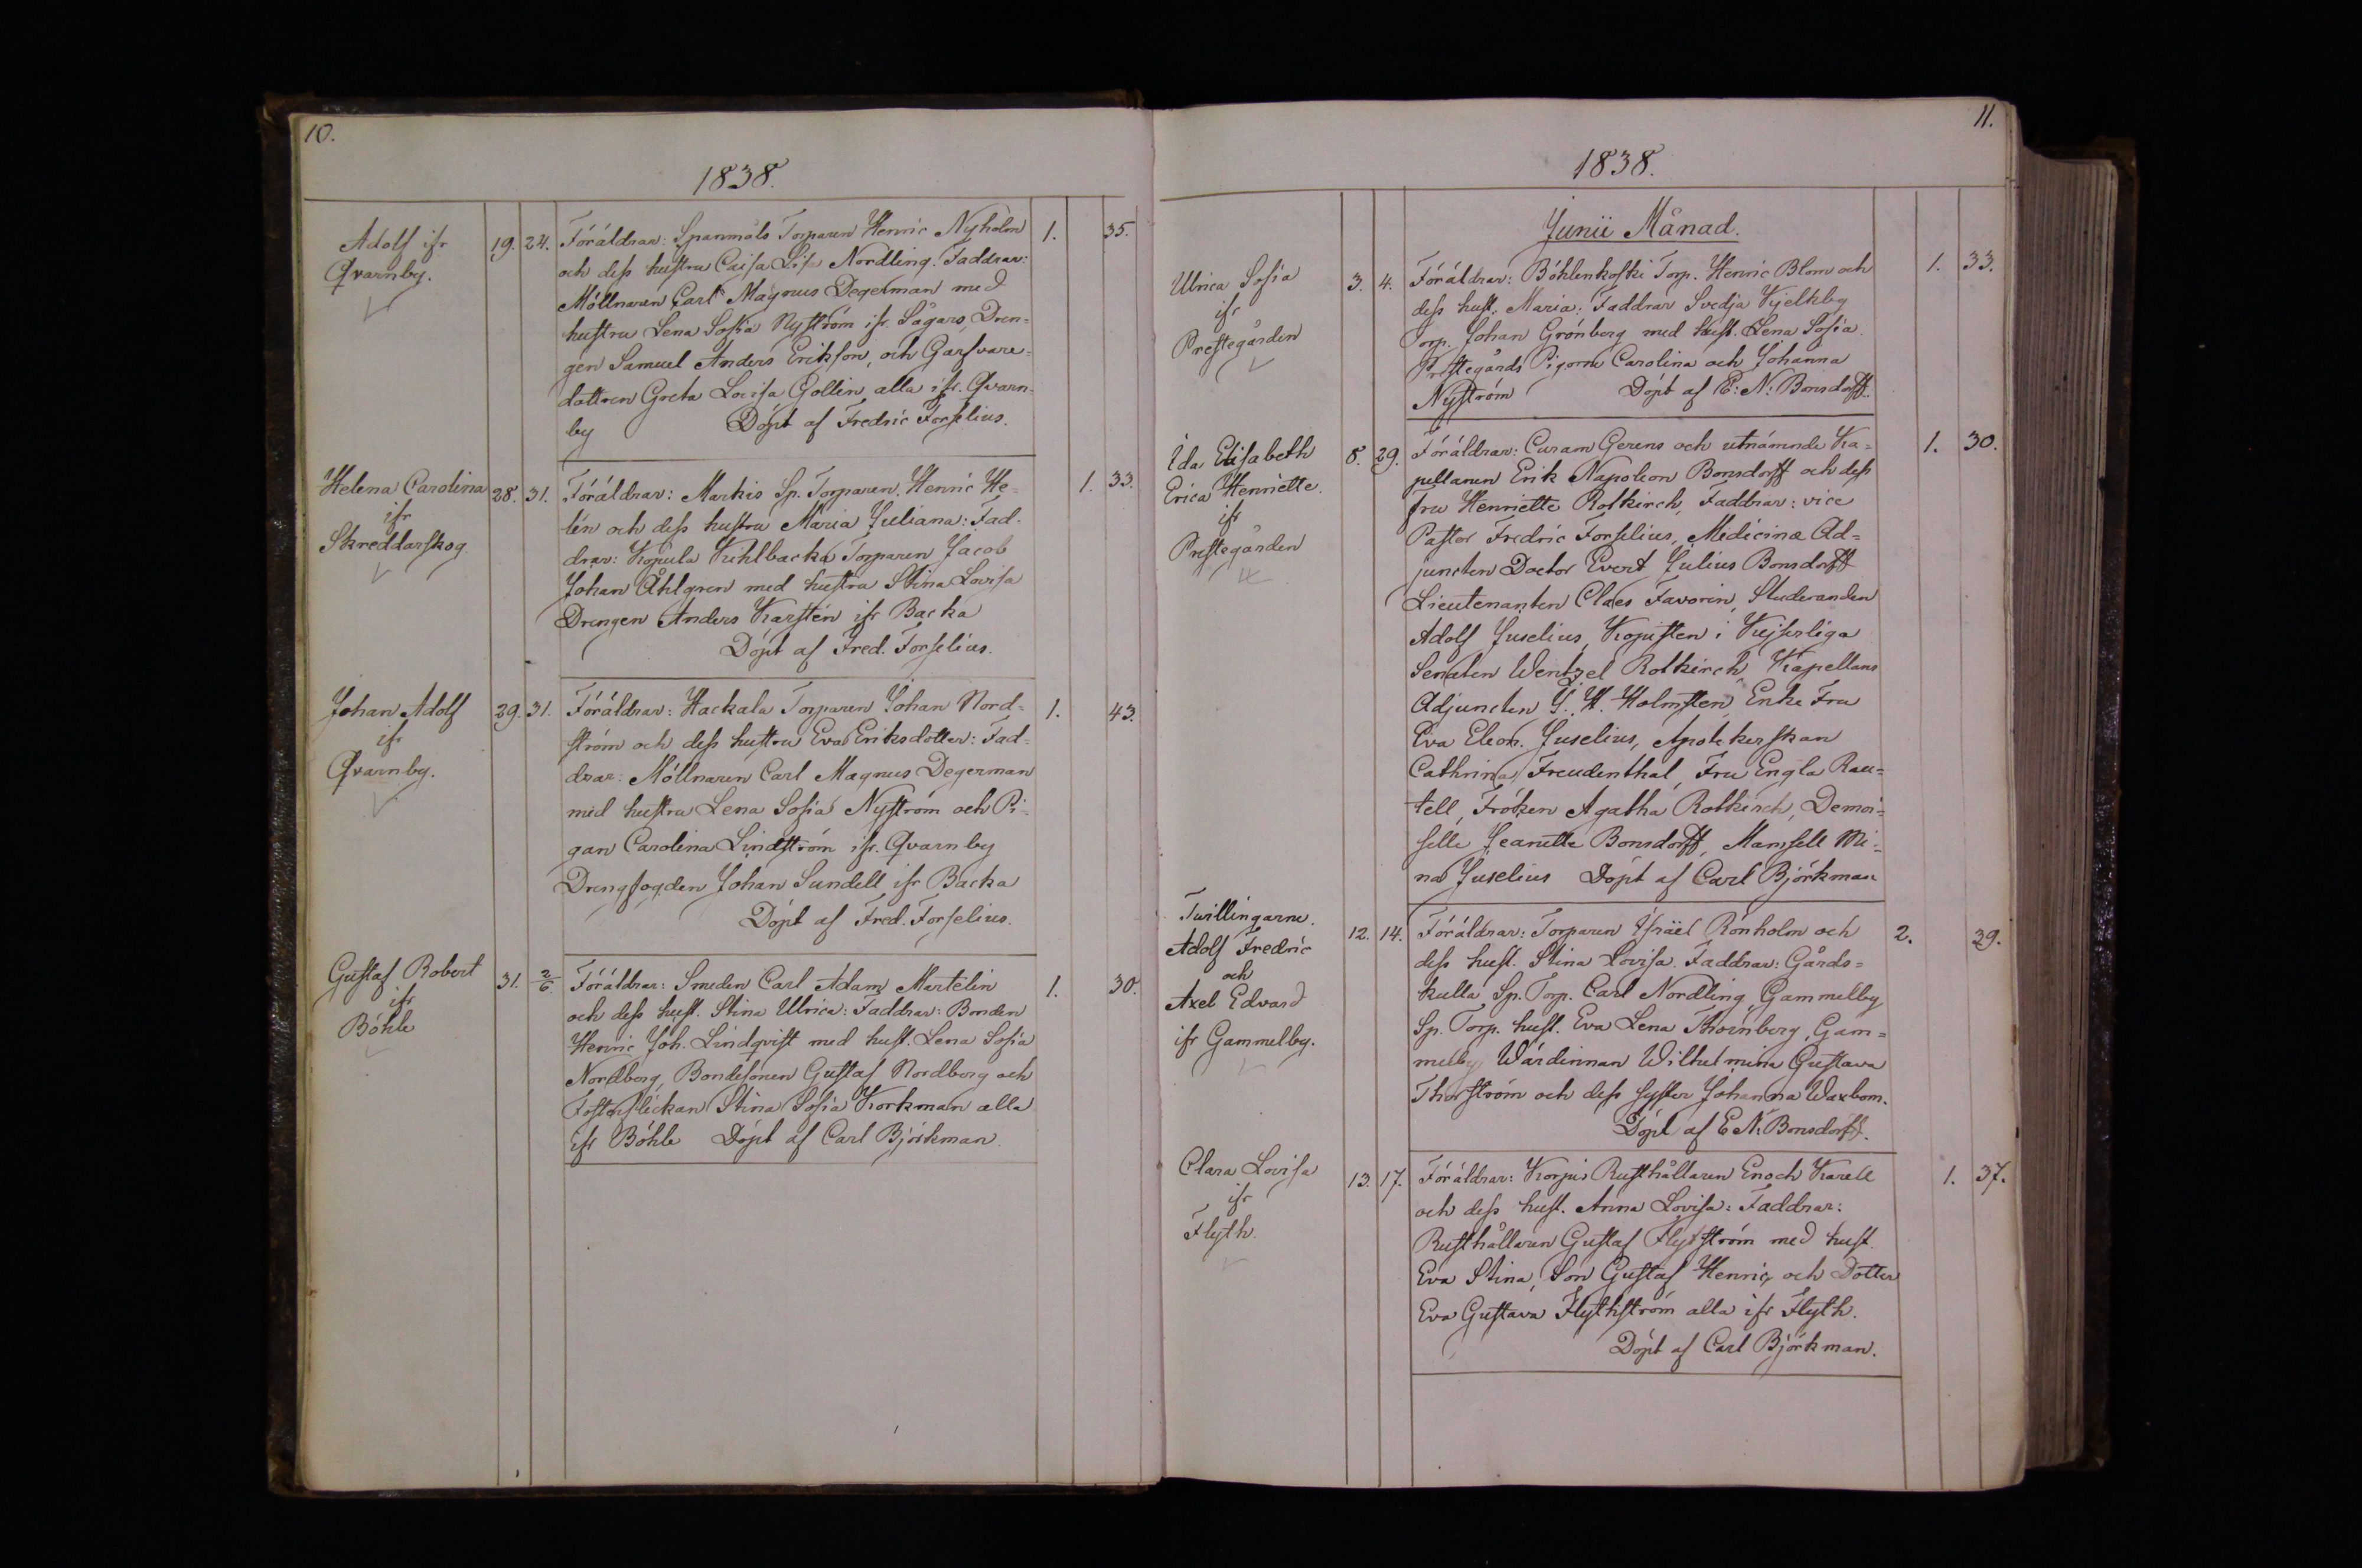 10.
1838.
Adolf ifr
Qvarnby.
19. 24.
Föräldrar: Spanmåls Torparen Henric Nyholm
och dess hustru Caisa Lisa Nordling. Faddrar:
Möllnaren Carl Magnus Degerman med
hustru Lena Sofia Nyström ifr. Sågars, Dren=
gen Samuel Anders Erikson, och Garfvare=
dottren Greta Lovisa Gollin, alla ifr. Qvarn-
by Döpt af Fredric Forselius.
1. 35.
Helena Carolina
ifr
Skreddarskog
28. 31.
Föräldrar: Markis Sp. Torparen Henric He=
lén och dess hustru Maria Juliana: Fad-
drar: Kopula Kihlbacka Torparen Jacob
Johan Åhlgren med hustru Stina Lovisa
Drengen Anders Karstén ifr Backa
Döpt af Fred. Forselius.
1. 33.
Johan Adolf
ifr
Qvarnby.
29. 31.
Föräldrar: Hackala Torparen Johan Nord=
ström och dess hustru Eva Eriksdotter: Fad=
drar: Möllnaren Carl Magnus Degerman
med hustru Lena Sofia Nyström och Pi-
gan Carolina Lindström ifr. Qvarnby
Drengfogden Johan Sundell ifr Backa
Döpt af Fred. Forselius.
1. 43.
Gustaf Robert
ifr
Böhle
31. 2/6.
Föräldrar: Smeden Carl Adam Martelin
och dess hust. Stina Ulrica: Faddrar: Bonden
Henric Joh. Lindqvist med hust. Lena Sofia
Nordborg, Bondesonen Gustaf Nordborg och
Fosterflickan Stina Sofia Korkman alla
ifr Böhle Döpt af Carl Björkman.
1. 30.
11.
1838.
Junii Månad.
Ulrica Sofia
ifr
Prestegården
3. 4.
Föräldrar: Böhlenkoski Torp. Henric Blom och
dess hust. Maria: Faddrar Svedja Kjelkby
Torp. Johan Grönberg med hust. Lena Sofia
Prestegårds Pigorna Carolina och Johanna
Nyström Döpt af E: N: Bonsdorff.
1. 33.
Ida Elisabeth
Erica Henriette.
ifr
Prestegården
8. 29.
Föräldrar: Curam Gerens och utnämnde Ka=
pellanen Erik Napoleon Bonsdorff och dess
fru Henriette Rotkirch, Faddrar: vice
Pastor Fredric Forselius, Medicinæ Ad=
juncten Doctor Evert Julius Bonsdorff
Lieutenanten Claes Favorin, Studeranden
Adolf Juselius, Kopisten i Kejserliga
Senaten Wentzel Rotkirch, Kapellans
Adjuncten G. H. Holmsten, Enke Fru
Eva Eleon. Juselius, Apotekerskan
Cathrina Freudenthal, Fru Engla Rau=
tell, Fröken Agatha Rotkirch, Demoi=
selle Jeanette Bonsdorff, Mamsell Mi=
na Juselius Döpt af Carl Björkman
1. 30.
Tvillingarne.
Adolf Fredric
och
Axel Edvard
ifr Gammelby.
12. 14.
Föräldrar: Torparen Israël Rönholm och
dess hust. Stina Lovisa. Faddrar: Gårds=
kulla Sp. Torp. Carl Nordling Gammelby
Sp. Torp. hust. Eva Lena Thornberg, Gam=
melby Wärdinnan Wilhelmina Gustava
Thorström och dess syster Johanna Waxbom.
Döpt af E N: Bonsdorff.
2. 29.
Clara Lovisa
ifr
Flyth.
13. 17.
Föräldrar: Korpis Rusthållaren Enoch Karell
och dess hust. Anna Lovisa: Faddrar:
Rusthållaren Gustaf Flytström med hust.
Eva Stina, Son Gustaf Henric och Dotter
Eva Gustava Flythström alla ifr Flyth.
Döpt af Carl Björkman.
1. 37.